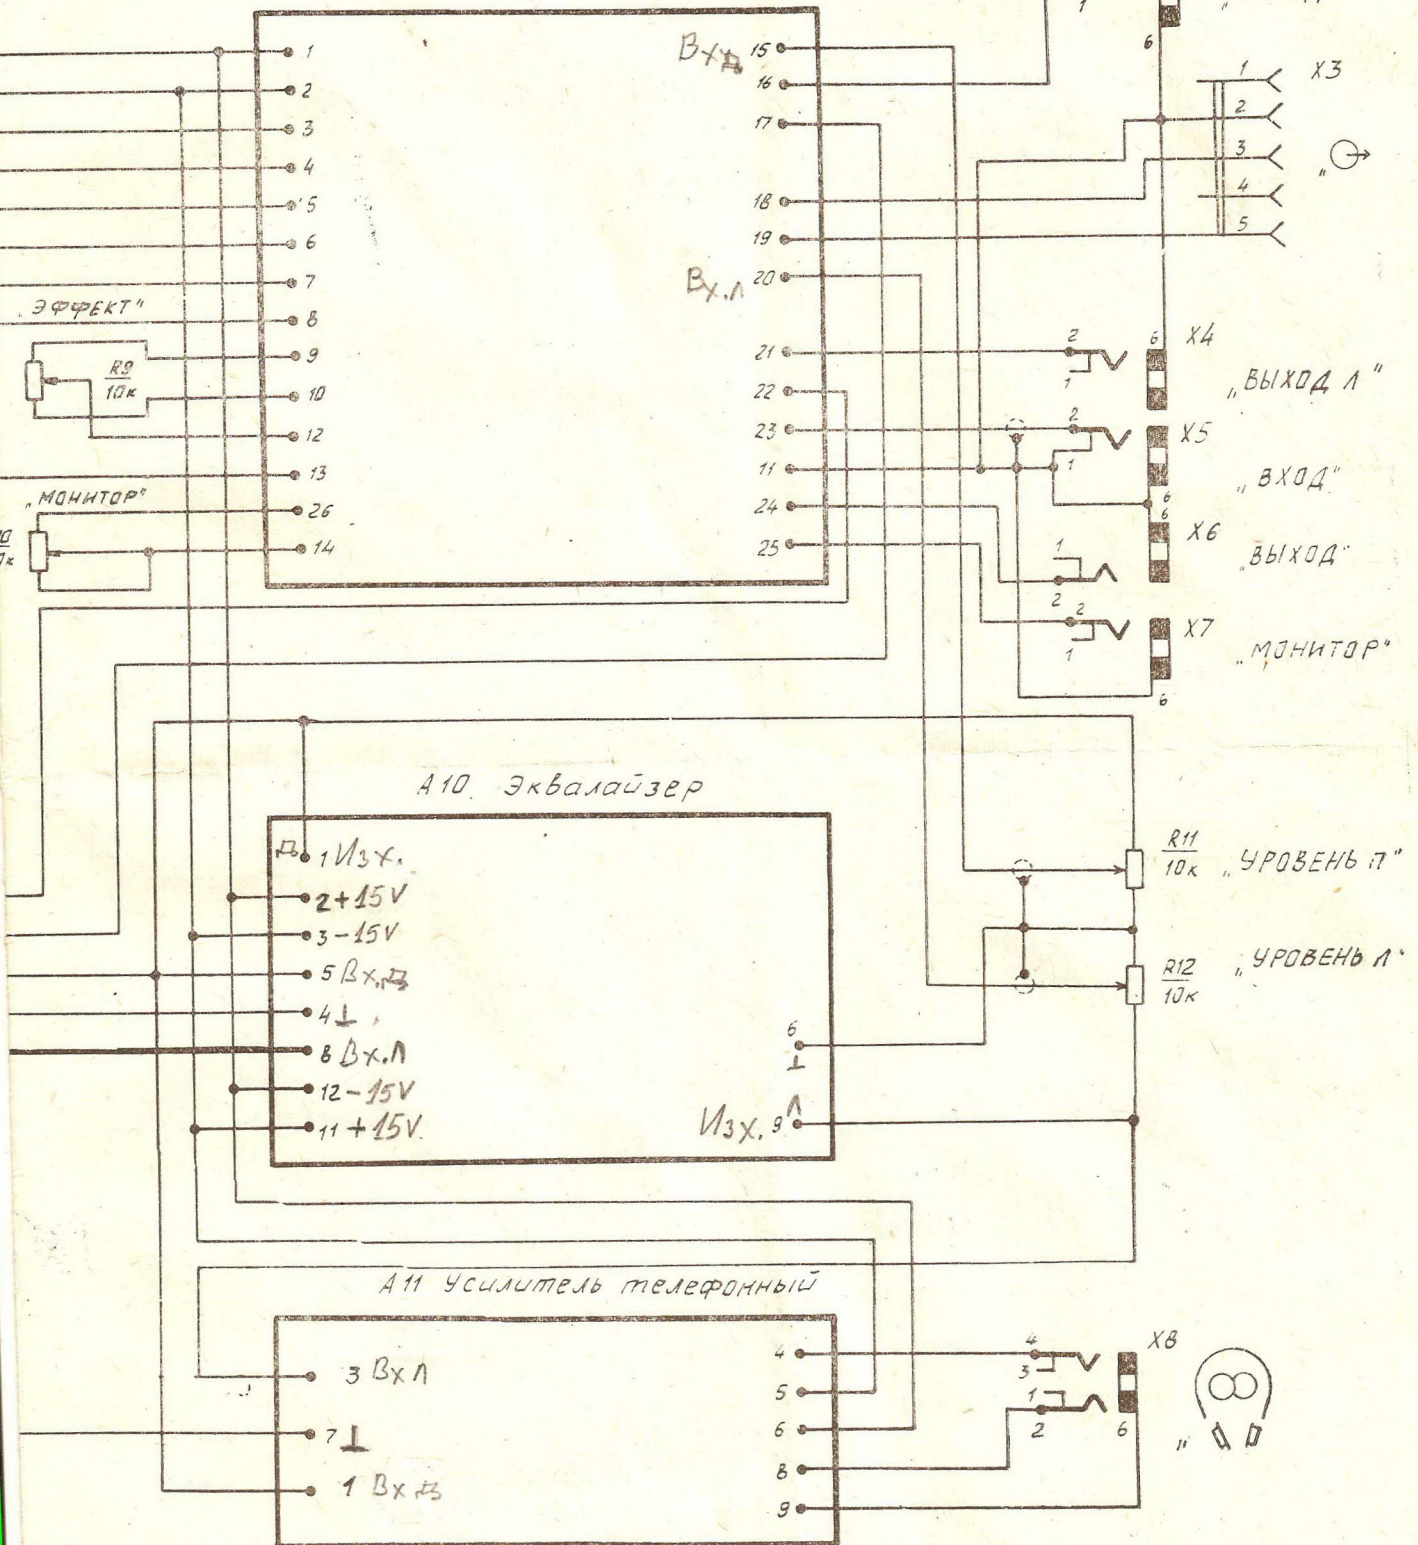 1
6
1
2
3
4
5
6
7
8
9
10
12
13
26
14
"ЭФФЕКТ"
R9
10к
"МОНИТОР"
Вх Д 15
16
17
18
19
Вх.Л 20
21
22
23
11
24
25
1 X3
2
3
4
5
2 6 X4
1
"ВЫХОД Л"
2 X5
1
6
"ВХОД"
6 X6
1
2
"ВЫХОД"
2 X7
1
6
"МОНИТОР"
А10 Эквалайзер
Д 1 Изх.
2 +15V
3 -15V
5 Вх.Д
4 ⊥
8 Вх.Л
12 -15V
11 +15V.
6
⊥
Изх. 9 Л
R11
10к
"УРОВЕНЬ П"
R12
10к
"УРОВЕНЬ Л"
А11 Усилитель телефонный
3 Вх Л
7 ⊥
1 Вх Д
4
5
6
8
9
4 X8
3
1
2 6